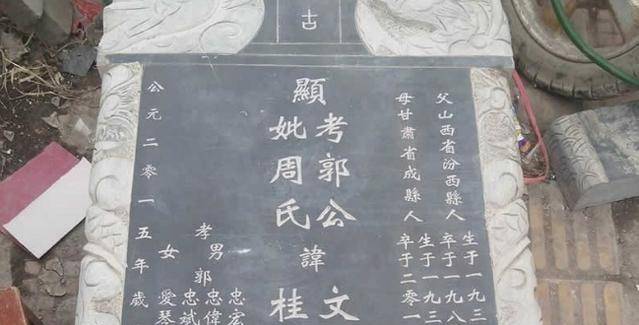 古
父山西省汾西縣人
生于一九三
卒于一九八
母甘肅省成縣人
生于一九三
卒于二零一
顯
考郭公諱文
妣周氏桂
孝
男郭
忠宏
忠偉
忠斌
女愛琴
公元二零一五年歲